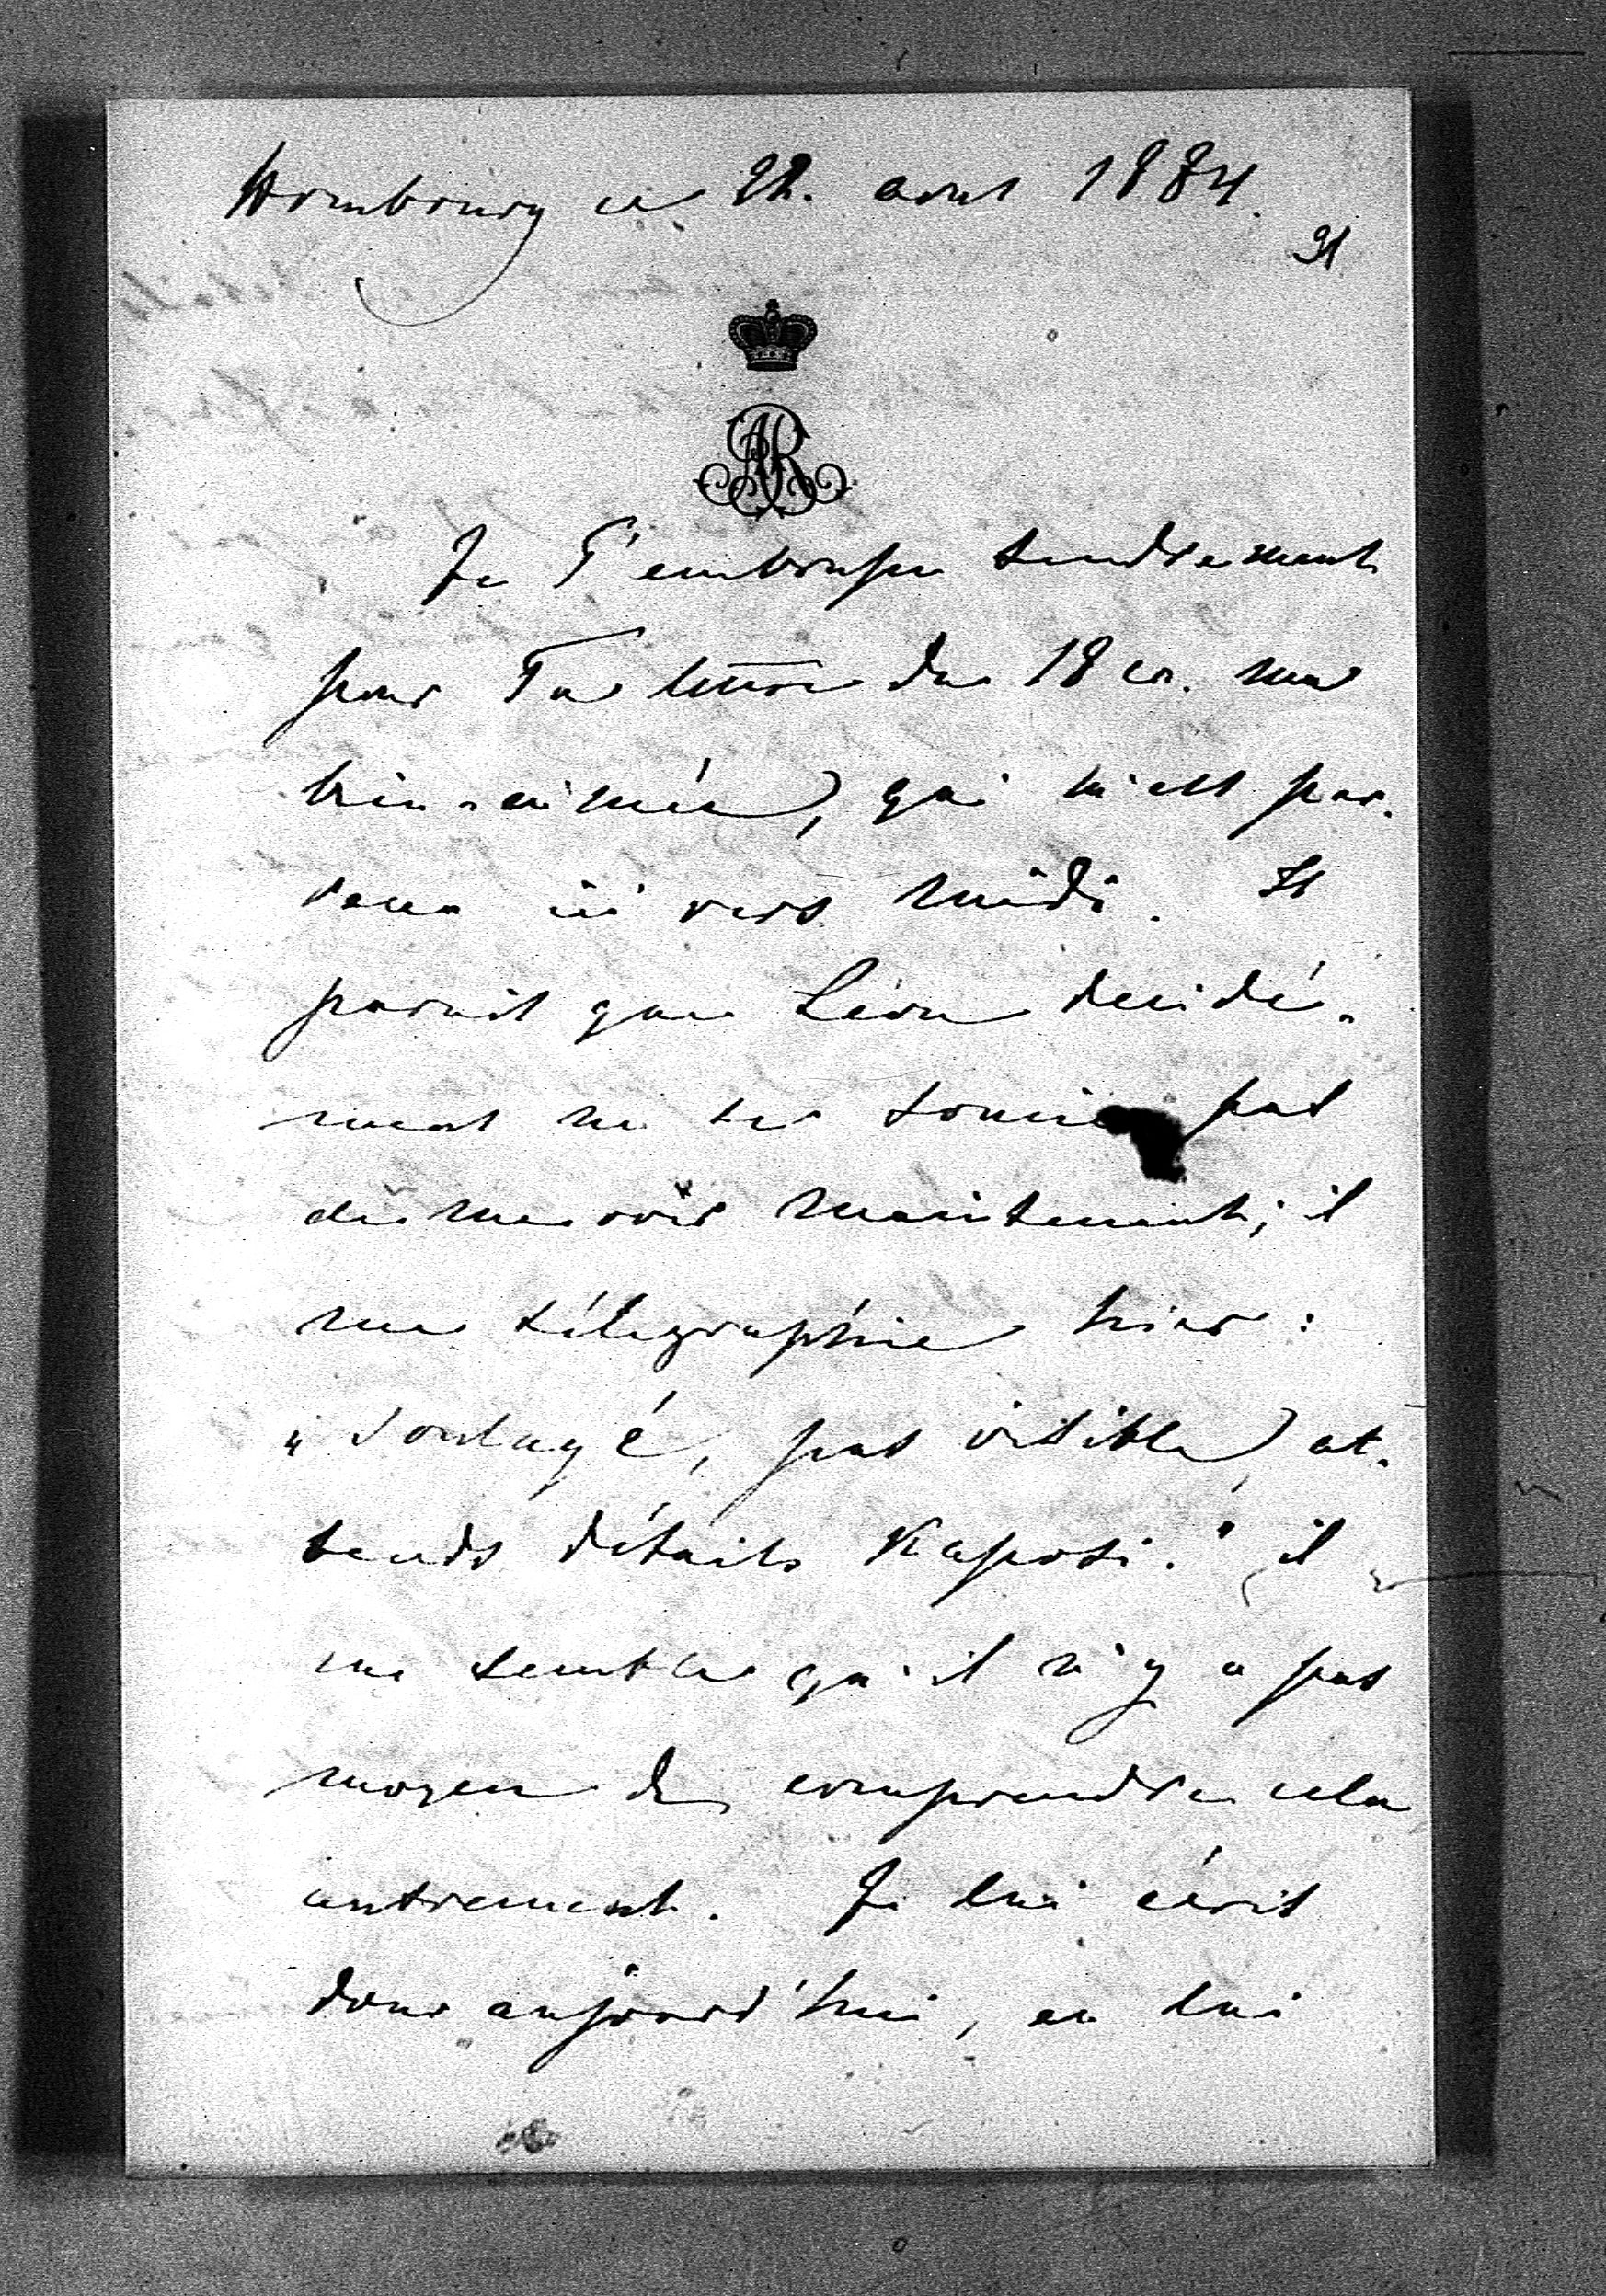 Hombourg ce 22. aout 1884.
91
AR
Je T'embrasse tendrement
pour Ta lettre du 18 cr. ma
bien-aimée, qui m'est par-
venu ici vers midi. Il
parait que Léon decidé-
ment ne se soucie pas
de me voir maintenant; il
me télégraphie hier:
„Soulagé, pas visible, at-
tends détails Kaposi." il
me semble qu'il n'y a pas
moyen de comprendre cela
autrement. Je lui écris
donc aujourd'hui, en lui